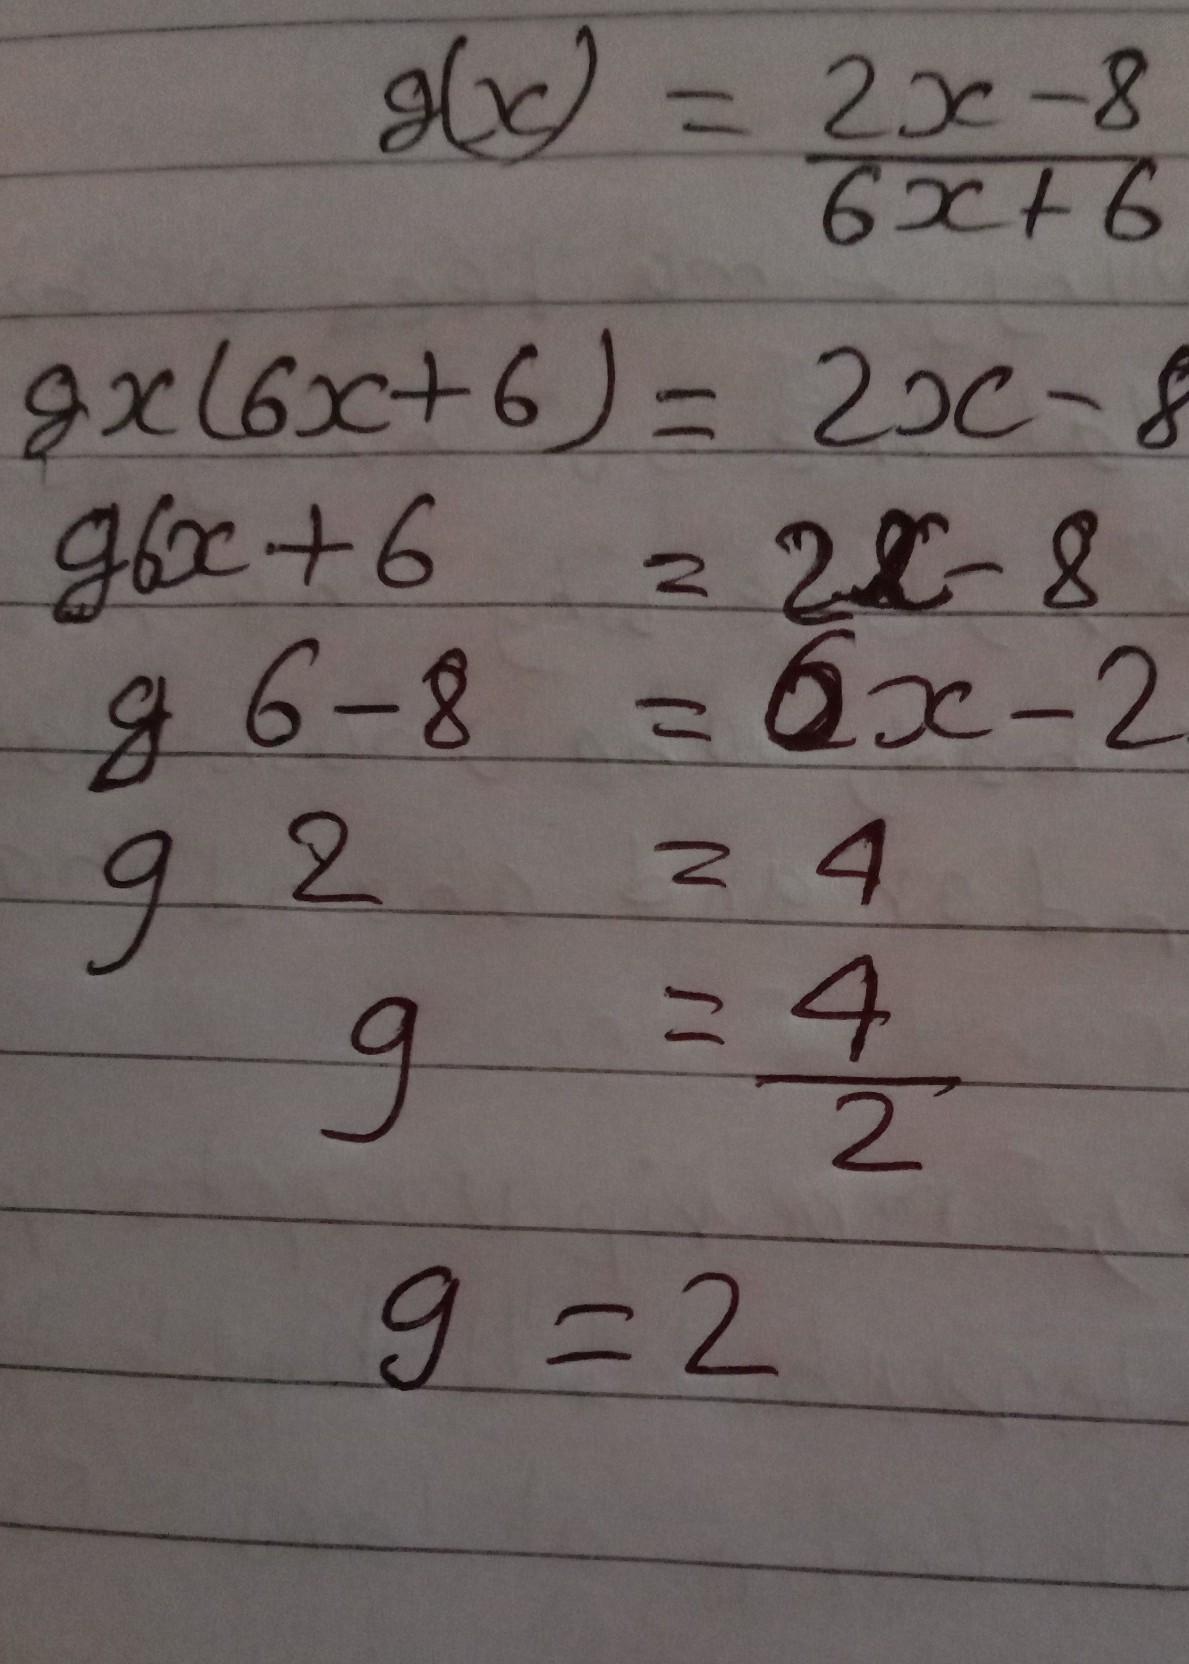 g(x) = 2x - 8
6x + 6
gx(6x + 6) = 2x - 8
g6x + 6 = 2x - 8
g 6 - 8 = 6x - 2
g 2 = 4
g = 4
2
g = 2